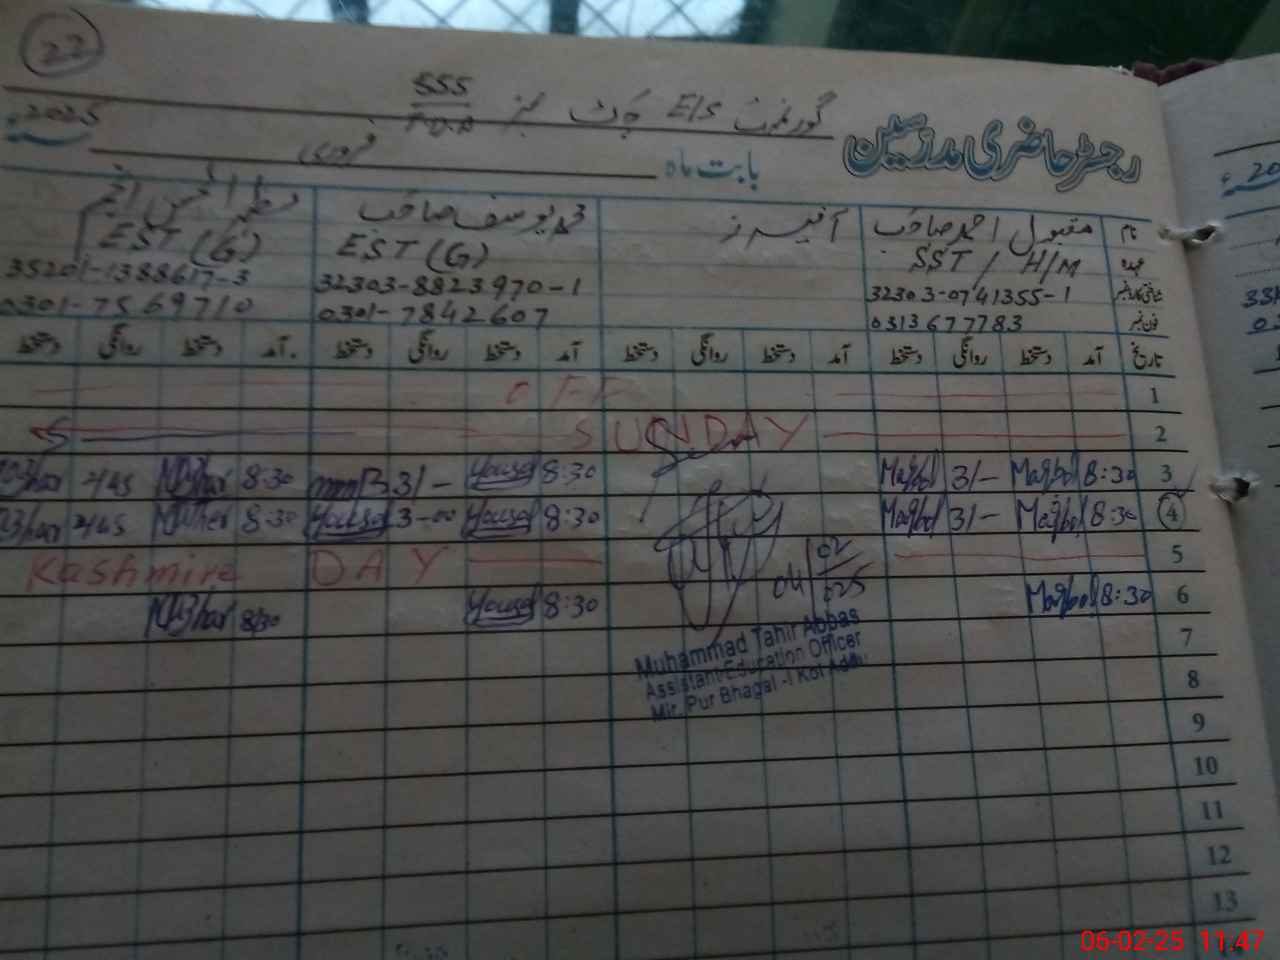 22
گورنمنٹ E/S چوٹ نمبر SSS
رجسٹر حاضری مدرسین
بابت ماہ فروری 2025
نام مقبول احمد صاحب آفیسرز محمد یوسف صاحب
عہدہ SST / H/M EST (G) EST (G)
شناختی کارڈ نمبر 32303-0741355-1 32303-8823970-1 35201-1388617-3
فون نمبر 0313677783 0301-7842607 0301-7569710
تاریخ آمد دستخط روانگی دستخط آمد دستخط روانگی دستخط آمد دستخط روانگی دستخط آمد دستخط روانگی دستخط
1 OFF
2 SUNDAY
3 8:30 Maqbol 3/- Maqbol 8:30 Yousaf 3/- 8:30 2/45
4 8:30 Maqbol 3/- Maqbol 8:30 Yousaf 3-00 Yousaf 8:30 2/45
5 Kashmire DAY
6 8:30 Maqbol 8:30 Yousaf 8:30
04/02/025
Muhammad Tahir Abbas
Assistant Education Officer
Mir. Pur Bhagal -I Kot Addu
7
8
9
10
11
12
13
06-02-25 11:47